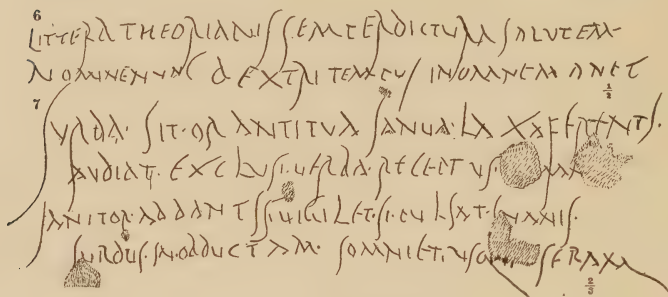 6
LITTERA THEORIANIS SEMPER DICTURA SALUTEM
NOMINE NUNC DEXTRI TEMPUS IN OMNE MANET
1/2
7
SURDA. SIT. ORANTI TUA IANUA. LAXA FERENTI.
AUDIAT. EXCLUSI. UERBA. RECEPTUS.
IANITOR. AD DANTIS. UIGILET. SI. PULSAT. INANIS.
SURDUS. IN. OBDUCTAM. SOMNIET. SERAM
2/3